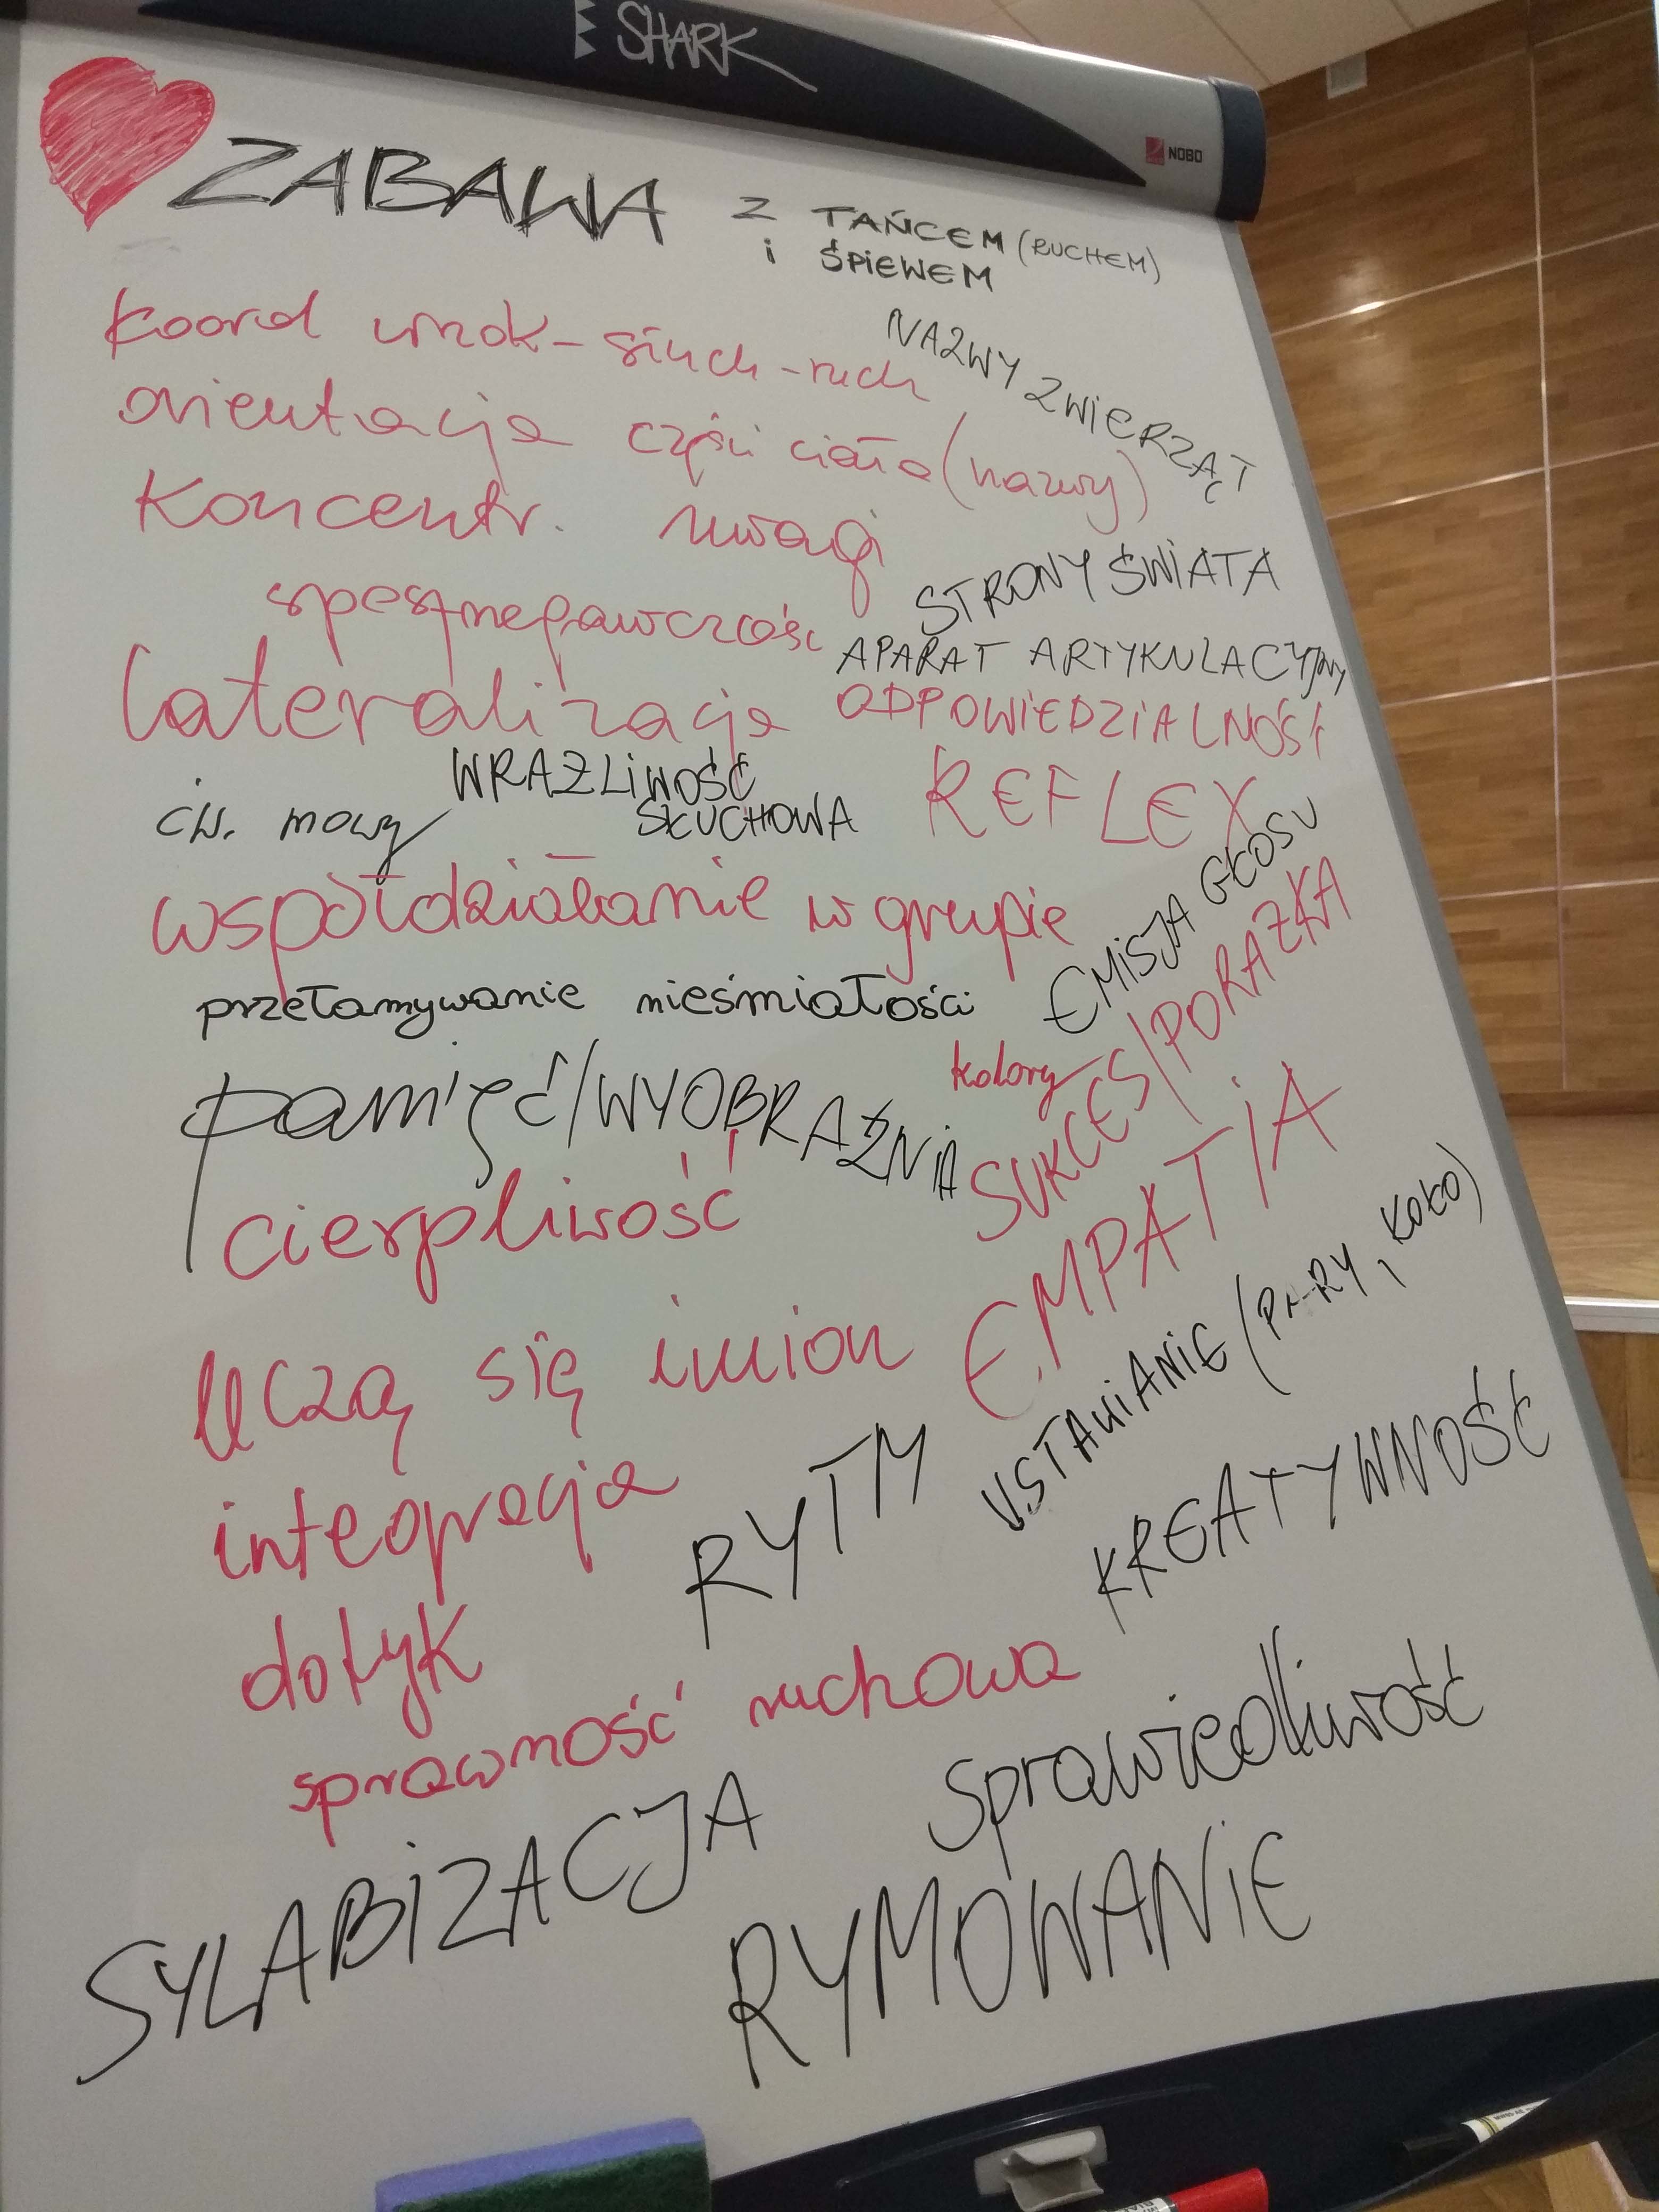 SHARK
NOBO
ZABAWA Z TAŃCEM (RUCHEM)
i ŚPIEWEM
koord wzrok-słuch-ruch
NAZWY ZWIERZĄT
orientacja części ciała (nazwy)
koncentr. uwagi
STRONY ŚWIATA
spostrzegawczość
APARAT ARTYKULACYJNY
lateralizacja
ODPOWIEDZIALNOŚĆ
WRAŻLIWOŚĆ
SŁUCHOWA
ćw. mowy
REFLEX
współdziałanie w grupie
EMISJA GŁOSU
przełamywanie nieśmiałości
kolory
SUKCES/PORAŻKA
pamięć/WYOBRAŹNIA
cierpliwość
EMPATIA
uczą się imion
USTAWIANIE (PARY, KOŁO)
integracja
RYTM
KREATYWNOŚĆ
dotyk
sprawność ruchowa
sprawiedliwość
SYLABIZACJA
RYMOWANIE